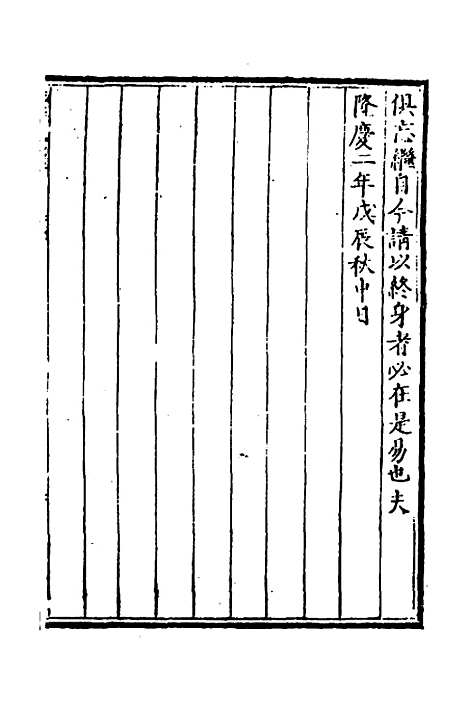 俱忘繼自今請以終身者必在是易也夫
隆慶二年戊辰秋中日